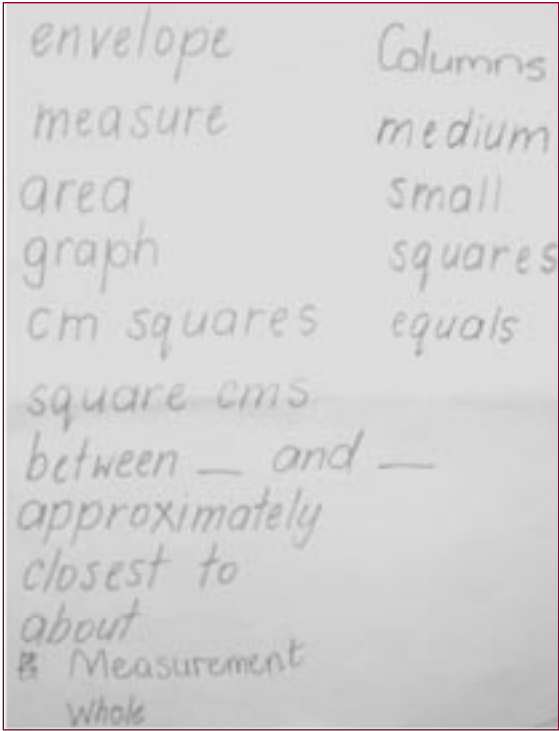 envelope
measure
area
graph
cm squares
square cms
between __ and __
approximately
closest to
about
Measurement
Whole
Columns
medium
small
squares
equals